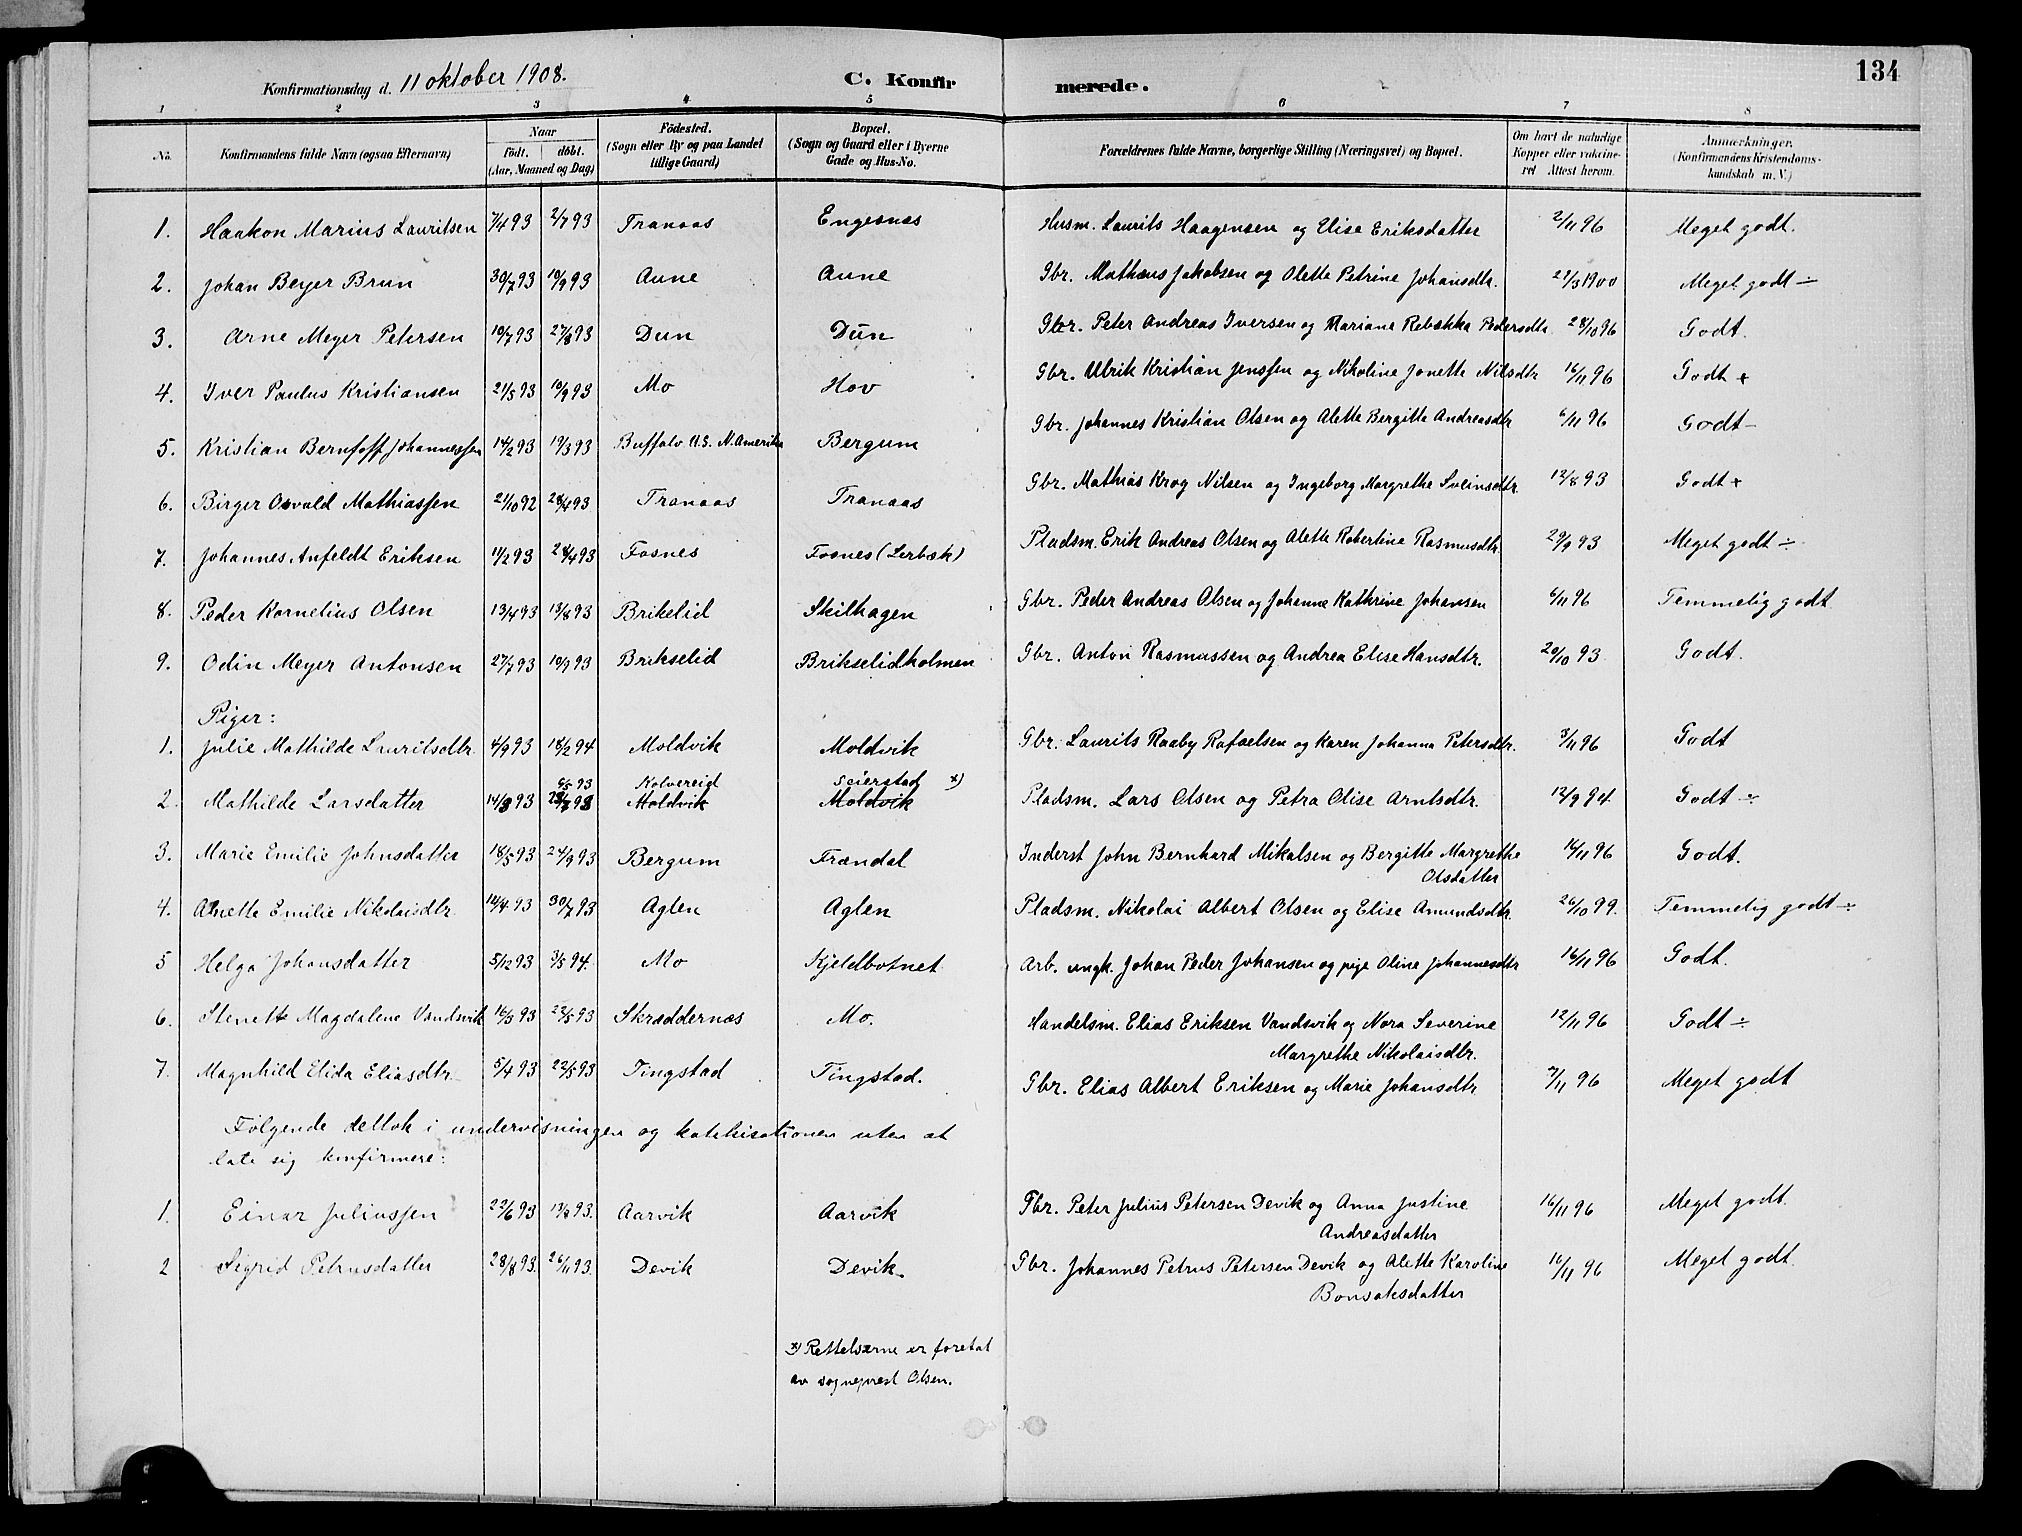 Konfirmationsdag d. 11 oktober 1908. C. Konfirmerede. 134
1 2 3 4 5 6 7 8
No. Konfirmandens fulde Navn (ogsaa Efternavn) Naar Födt. döbt. (Aar, Maaned og Dag) Födested. (Sogn eller By og paa Landet tillige Gaard) Bopæl. (Sogn og Gaard eller i Byerne Gade og Hus-No. Forældrenes fulde Navne, borgerlige Stilling (Næringsvei) og Bopæl. Om havt de naturlige Kopper eller vaccineret Attest herom. Anmærkninger. (Konfirmandens Kristendomskundskab m. V.)
1. Haakon Marius Lauritsen 7/4 93 2/7 93 Tranaas Engesnes Husm. Laurits Haagensen og Elise Eriksdatter 2/11 96 Meget godt.
2. Johan Beyer Brun 30/7 93 10/9 93 Aune Aune Gbr. Mathæus Jakobsen og Olette Petrine Johansdtr. 21/3 1900 Meget godt ÷
3. Arne Meyer Petersen 10/7 93 27/8 93 Dun Dun Gbr. Peter Andreas Iversen og Mariane Rebekka Pedersdtr 28/10 96 Godt.
4. Iver Paulus Kristiansen 21/5 93 10/9 93 Mo Hov Gbr. Ulrik Kristian Jenssen og Nikoline Jonette Nilsdtr 16/11 96 Godt +
5. Kristian Bernhoff Johannessen 14/2 93 19/3 93 Buffalo U.S. N. Amerika Bergum Gbr. Johannes Kristian Olsen og Alette Bergitte Andreasdtr 6/11 96 Godt -
6. Birger Osvald Mathiassen 21/10 92 28/4 93 Tranaas Tranaas Gbr. Mathias Krog Nilsen og Ingeborg Margrethe Sveinsdtr. 12/8 93 Godt +
7. Johannes Anfeldt Eriksen 11/2 93 28/4 93 Fosnes Fosnes (Lerbæk) Pladsm. Erik Andreas Olsen og Alette Robertine Rasmusdtr. 29/9 93 Meget godt ÷
8. Peder Kornelius Olsen 13/4 93 13/8 93 Brikslid Skilhagen Gbr. Peder Andreas Olsen og Johanne Kathrine Johansen 6/11 96 Temmelig godt.
9. Odin Meyer Antonsen 27/7 93 10/9 93 Brikselid Brikselidholmen Gbr. Anton Rasmussen og Andrea Elise Hansdtr. 20/10 93 Godt.
Piger:
1. Julie Mathilde Lauritsdtr. 4/9 93 18/2 94 Moldvik Moldvik Gbr. Laurits Raaby Rafaelsen og Karen Johanna Petersdtr. 3/11 96 Godt
6/5 93 Kolvereid Seierstad x)
2. Mathilde Larsdatter 14/3 93 Moldvik Moldvik Pladsm. Lars Olsen og Petra Olise Arntsdtr. 12/9 94. Godt ÷
3. Marie Emilie Johnsdatter 18/5 93 24/9 93 Bergum Frændal Inderst John Bernhard Mikalsen og Bergitte Margrethe 16/11 96 Godt.
Olsdatter
4. Anette Emilie Nikolaisdtr. 14/4 93 30/7 93 Aglen Aglen Pladsm. Nikolai Albert Olsen og Elise Amundsdtr. 26/10 99. Temmelig godt ÷
5 Helga Johansdatter 5/12 93 3/5 94. Mo Kjeldbotnet Arb. ungk. Johan Peder Johansen og pige Oline Johannesdtr 16/11 96 Godt.
6. Stenette Magdalene Vandsvik 16/3 93 22/5 93 Skræddernæs Mo. Handelsm. Elias Eriksen Vandsvik og Nora Severine 12/11 96 Godt ÷
Margrethe Nikolaisdtr.
7. Magnhild Elida Eliasdtr. 5/4 93 22/5 93 Tingstad Tingstad. Gbr. Elias Albert Eriksen og Marie Johansdtr 7/11 96 Meget godt
Følgende deltok i undervisningen og katekisationen uten at
late sig konfirmere:
1. Einar Juliussen 22/6 93 13/8 93. Aarvik Aarvik Fbr. Peter Julius Petersen Devik og Anna Justine 16/11 96 Meget godt.
Andreasdatter
2 Sigrid Petrusdatter 28/8 93. 26/11 93. Devik Devik. Gbr. Johannes Petrus Petersen Devik og Alette Karoline 16/11 96 Meget godt.
Bonsaksdatter
x) Rettelserne er foretat
av sogneprest Olsen.